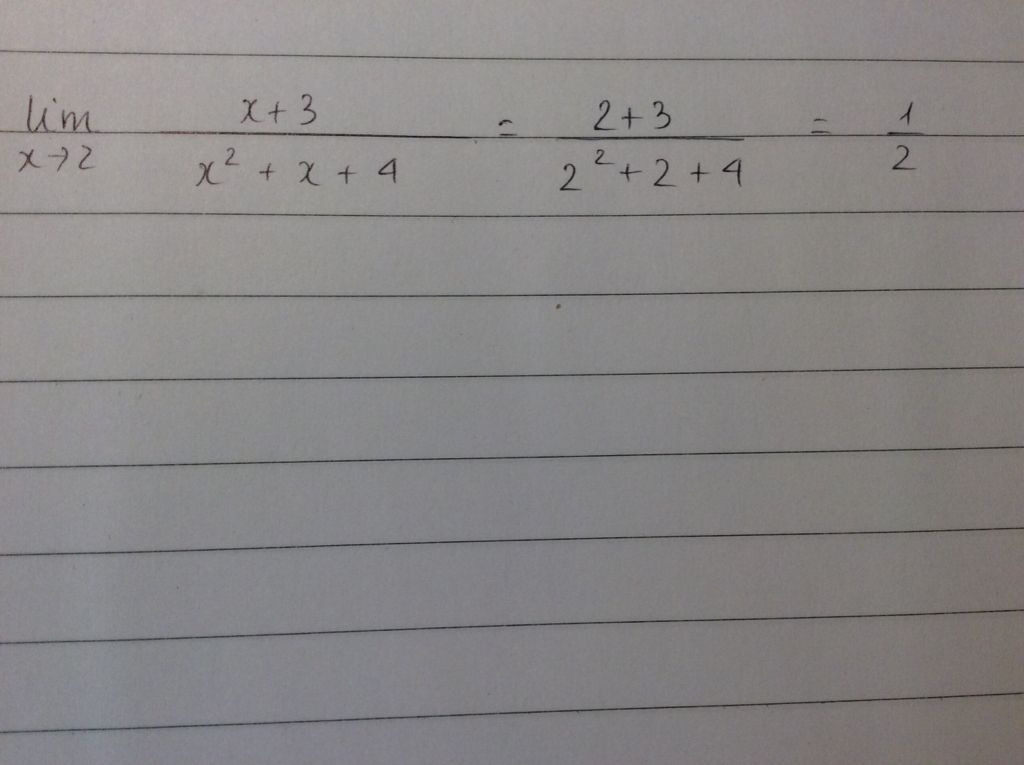 lim x→2 (x+3)/(x² + x + 4) = (2+3)/(2² + 2 + 4) = 1/2